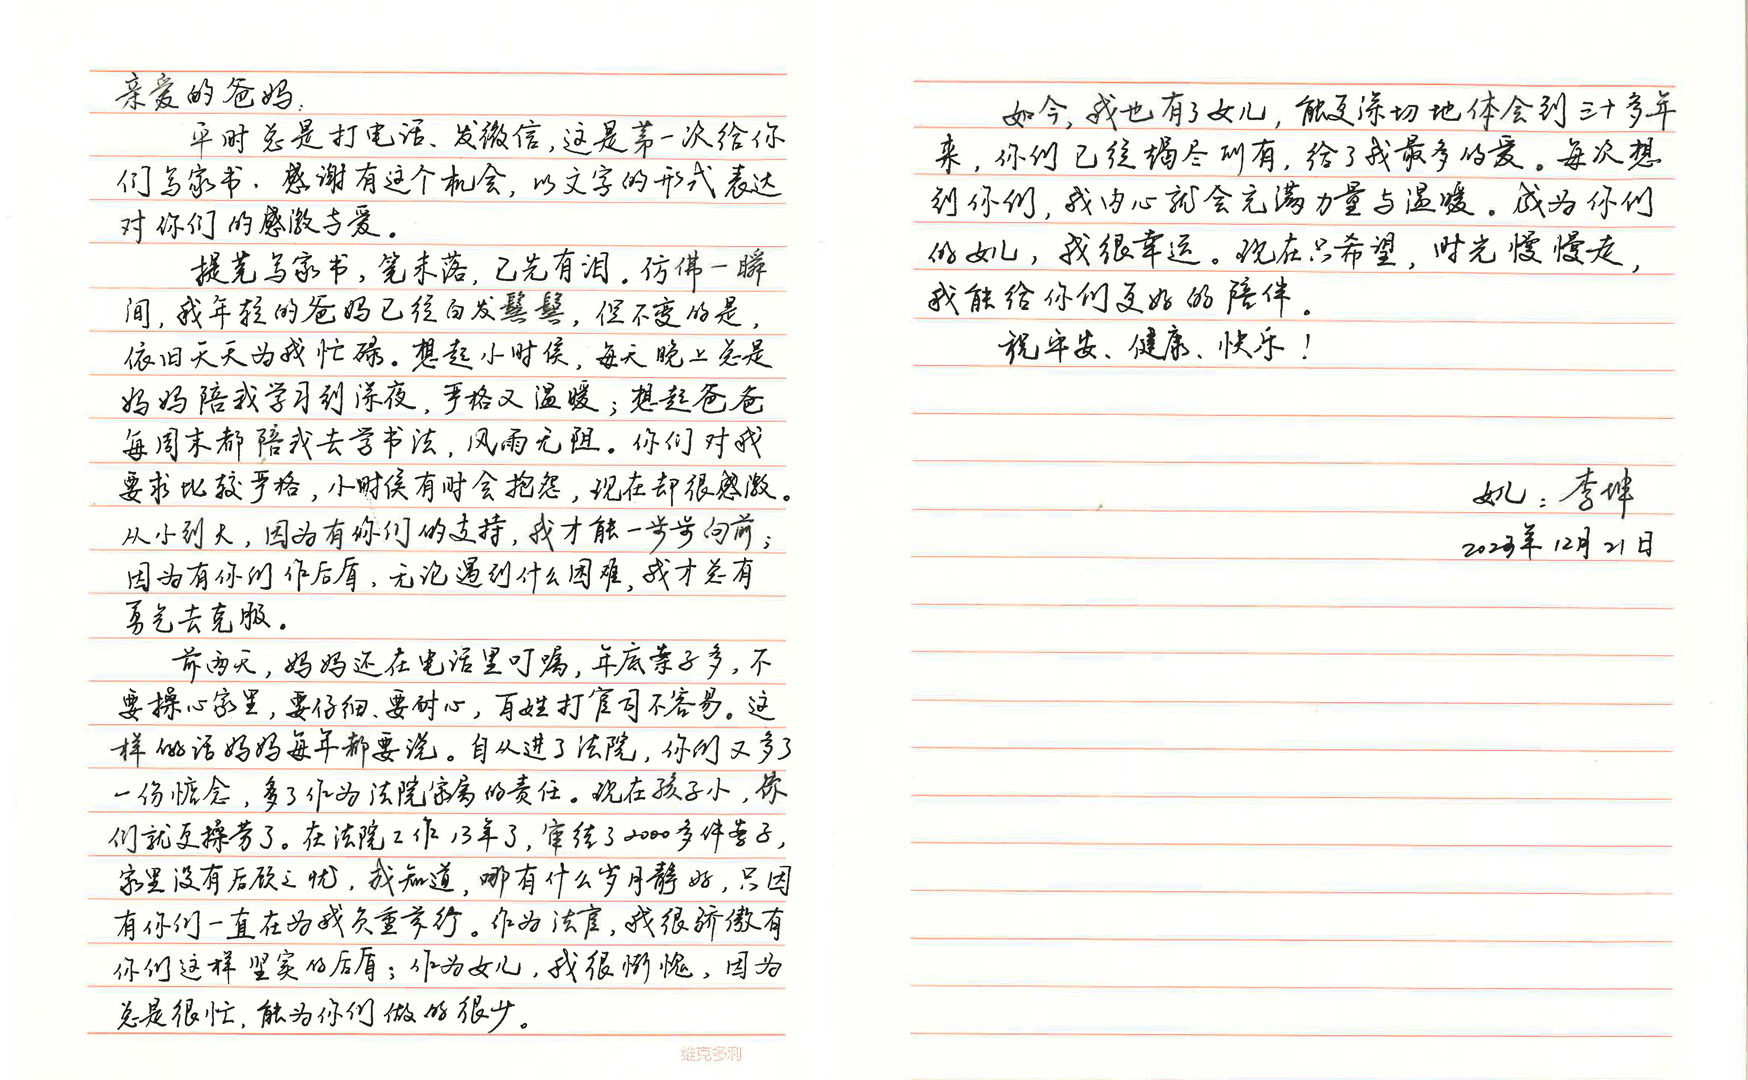 亲爱的爸妈:
平时总是打电话、发微信,这是第一次给你
们写家书。感谢有这个机会,以文字的形式表达
对你们的感激与爱。
提笔写家书,笔未落,已先有泪。仿佛一瞬
间,我年轻的爸妈已经白发鬓鬓,但不变的是,
依旧天天为我忙碌。想起小时侯,每天晚上总是
妈妈陪我学习到深夜,严格又温暖;想起爸爸
每周末都陪我去学书法,风雨无阻。你们对我
要求比较严格,小时侯有时会抱怨,现在却很感激。
从小到大,因为有你们的支持,我才能一步步向前;
因为有你们作后盾,无论遇到什么困难,我才总有
勇气去克服。
前两天,妈妈还在电话里叮嘱,年底案子多,不
要操心家里,要仔细、要耐心,百姓打官司不容易。这
样的话妈妈每年都要说。自从进了法院,你们又多了
一份惦念,多了作为法院家属的责任。现在孩子小,你
们就更操劳了。在法院工作13年了,审结了2000多件案子,
家里没有后顾之忧,我知道,哪有什么岁月静好,只因
有你们一直在为我负重前行。作为法官,我很骄傲有
你们这样坚实的后盾;作为女儿,我很惭愧,因为
总是很忙,能为你们做的很少。
维克多利
如今,我也有了女儿,能更深切地体会到三十多年
来,你们已经竭尽所有,给了我最多的爱。每次想
到你们,我内心就会充满力量与温暖。成为你们
的女儿,我很幸运。现在只希望,时光慢慢走,
我能给你们更好的陪伴。
祝平安、健康、快乐!
女儿:李坤
2023年12月21日